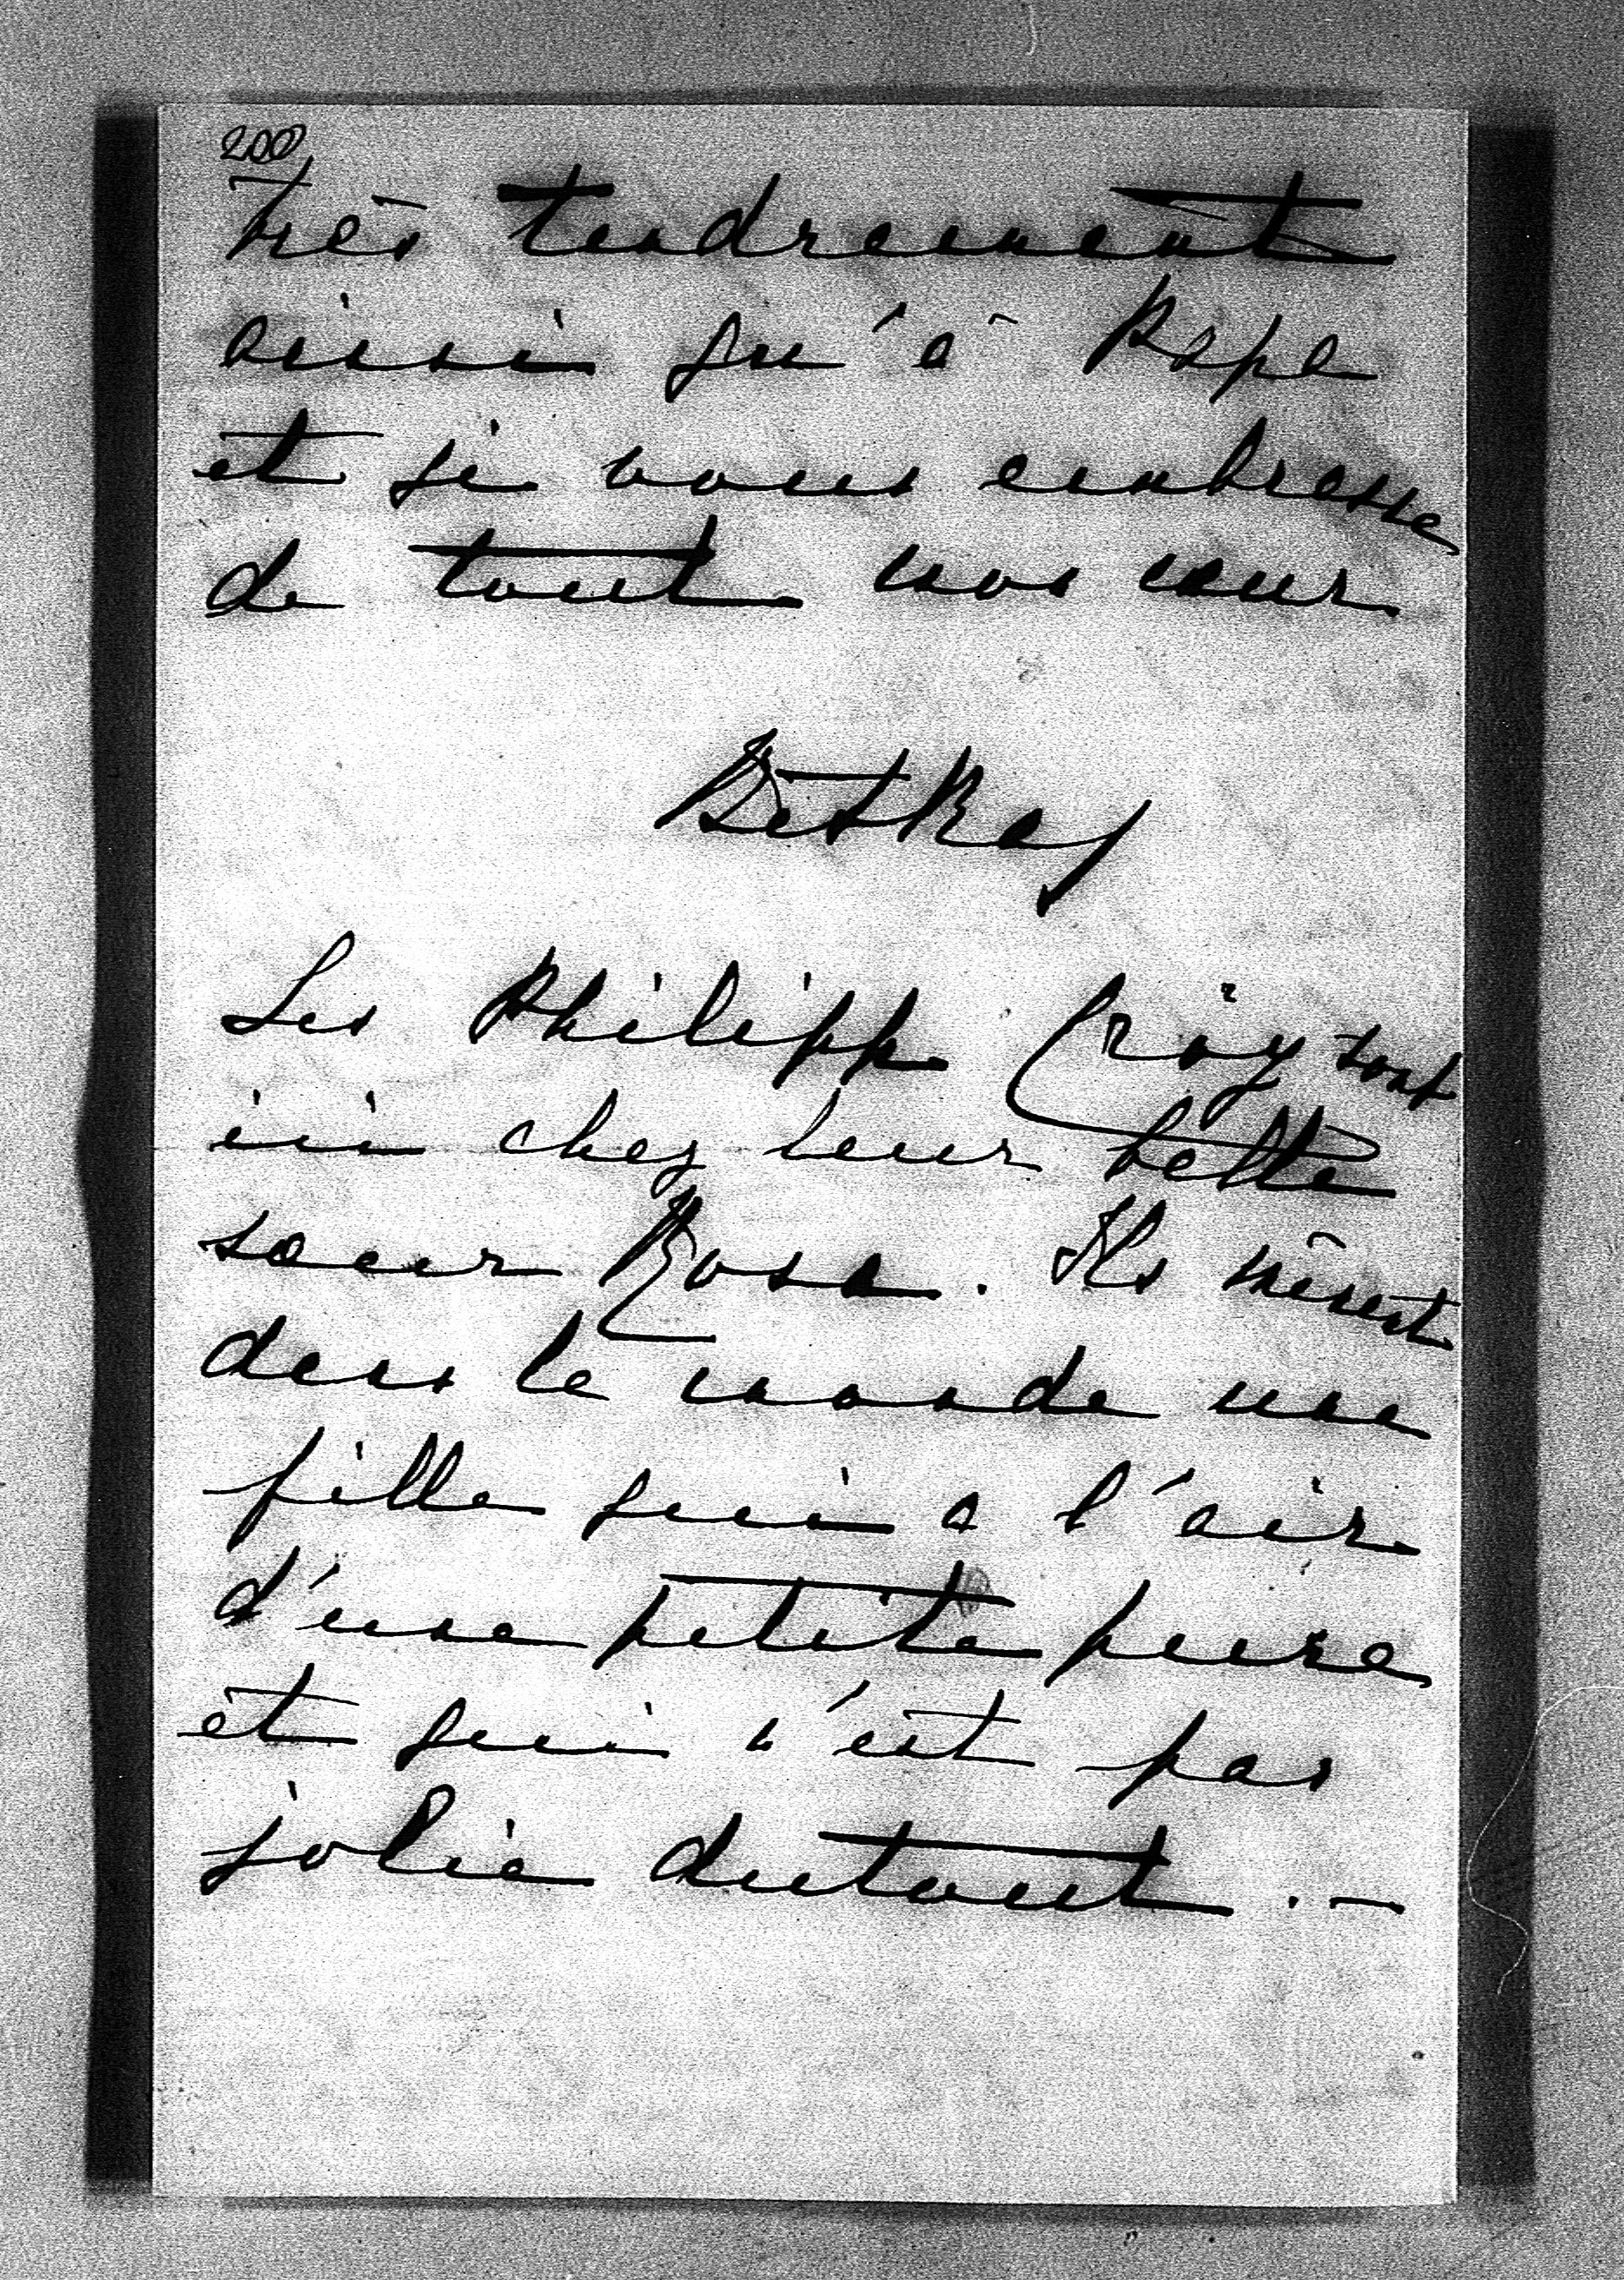 200
très tendrement
ainsi qu'à Papa
et je vous embrasse
de tout mon cœur
Betka
Les Philipp Croÿ sont
ici chez leur belle
sœur Rosa. Ils mènent
dans le monde une
fille qui a l'air
d'une petite
et qui n'est pas
jolie du tout. —